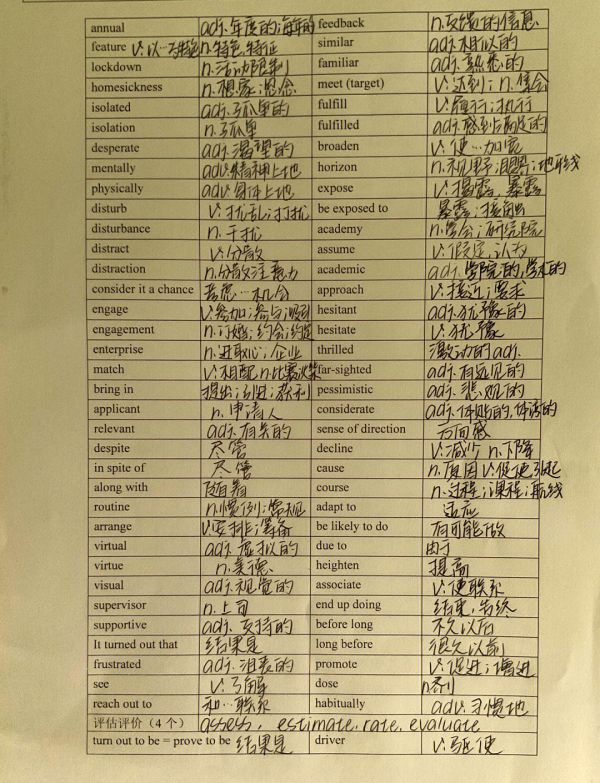 annual adj.年度的;每年的 feedback n.反馈的信息
feature v.以…为特色 n.特色,特征 similar adj.相似的
lockdown n.活动限制 familiar adj.熟悉的
homesickness n.想家;思念 meet (target) v.达到;n.集会
isolated adj.孤单的 fulfill v.履行;执行
isolation n.孤单 fulfilled adj.感到满足的
desperate adj.渴望的 broaden v.使…加宽
mentally adv.精神上地 horizon n.视野;眼界;地平线
physically adv.身体上地 expose v.揭露,暴露
disturb v.扰乱;打扰 be exposed to 暴露;接触
disturbance n.干扰 academy n.学会;研究院
distract v.分散 assume v.假定,认为
distraction n.分散注意力 academic adj.学院的,学术的
consider it a chance 考虑…机会 approach v.接近;要求
engage v.参加;参与;吸引 hesitant adj.犹豫的
engagement n.订婚;约会;约定 hesitate v.犹豫
enterprise n.进取心;企业 thrilled 激动的adj.
match v.相配 n.比赛;火柴 far-sighted adj.有远见的
bring in 提出;引进;获利 pessimistic adj.悲观的
applicant n.申请人 considerate adj.体贴的,体谅的
relevant adj.有关的 sense of direction 方向感
despite 尽管 decline v.减少 n.下降
in spite of 尽管 cause n.原因 v.促使;引起
along with 随着 course n.过程;课程;航线
routine n.惯例;常规 adapt to 适应
arrange v.安排;筹备 be likely to do 有可能做
virtual adj.虚拟的 due to 由于
virtue n.美德 heighten 提高
visual adj.视觉的 associate v.使联系
supervisor n.上司 end up doing 结束,告终
supportive adj.支持的 before long 不久以后
It turned out that 结果是 long before 很久以前
frustrated adj.沮丧的 promote v.促进;增进
see v.了解 dose n.剂
reach out to 和…联系 habitually adv.习惯地
评估评价（4 个） assess, estimate, rate, evaluate
turn out to be = prove to be 结果是 driver v.驱使